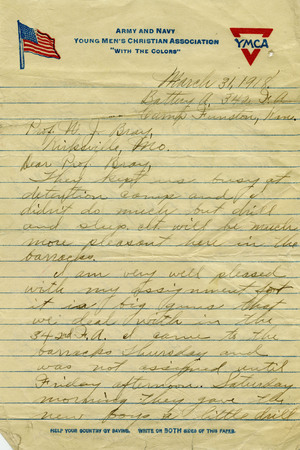 ARMY AND NAVY
YOUNG MEN'S CHRISTIAN ASSOCIATION
"WITH THE COLORS"
YMCA
March 31, 1918
Battery A, 342 F.A.
Camp Funston, Kans.
Prof. W. J. Bray,
Kirksville, Mo.
Dear Prof. Bray,
They kept us busy at
detention camp and I
didn't do much but drill
and sleep. It will be much
more pleasant here in the
barracks.
I am very well pleased
with my assignment for
it is big guns that
we deal with in the
342nd F.A. I came to the
barracks Thursday and
was not assigned until
Friday afternoon. Saturday
morning they gave the
new boys a little drill
HELP YOUR COUNTRY BY SAVING. WRITE ON BOTH SIDES OF THIS PAPER.